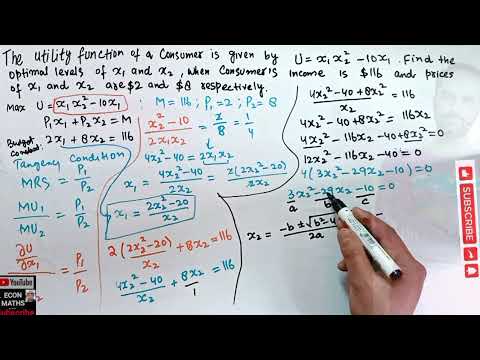 The utility function of a Consumer is given by U = x₁x₂² - 10x₁. Find the
optimal levels of x₁ and x₂, when Consumer's income is $116 and prices
of x₁ and x₂ are $2 and $8 respectively.
Max U = x₁x₂² - 10x₁ ; M = 116; P₁ = 2; P₂ = 8
P₁x₁ + P₂x₂ = M
Budget constraint: 2x₁ + 8x₂ = 116
Tangency Condition
MRS = P₁/P₂
∂U/∂x₁ = P₁/P₂
(x₂² - 10)/(2x₁x₂) = 2/8 = 1/4
4x₂² - 40 = 2x₁x₂
x₁ = (4x₂² - 40)/(2x₂) = 2(2x₂² - 20)/(2x₂)
x₁ = (2x₂² - 20)/x₂
2(2x₂² - 20)/x₂ + 8x₂ = 116
(4x₂² - 40)/x₂ + 8x₂/1 = 116
(4x₂² - 40 + 8x₂²)/x₂ = 116
4x₂² - 40 + 8x₂² = 116x₂
4x₂² - 116x₂ - 40 + 8x₂² = 0
12x₂² - 116x₂ - 40 = 0
4(3x₂² - 29x₂ - 10) = 0
3x₂² - 29x₂ - 10 = 0
a b c
x₂ = (-b ± √(b² - 4)/2a
YouTube
ECON
MATHS
Subscribe
SUBSCRIBE